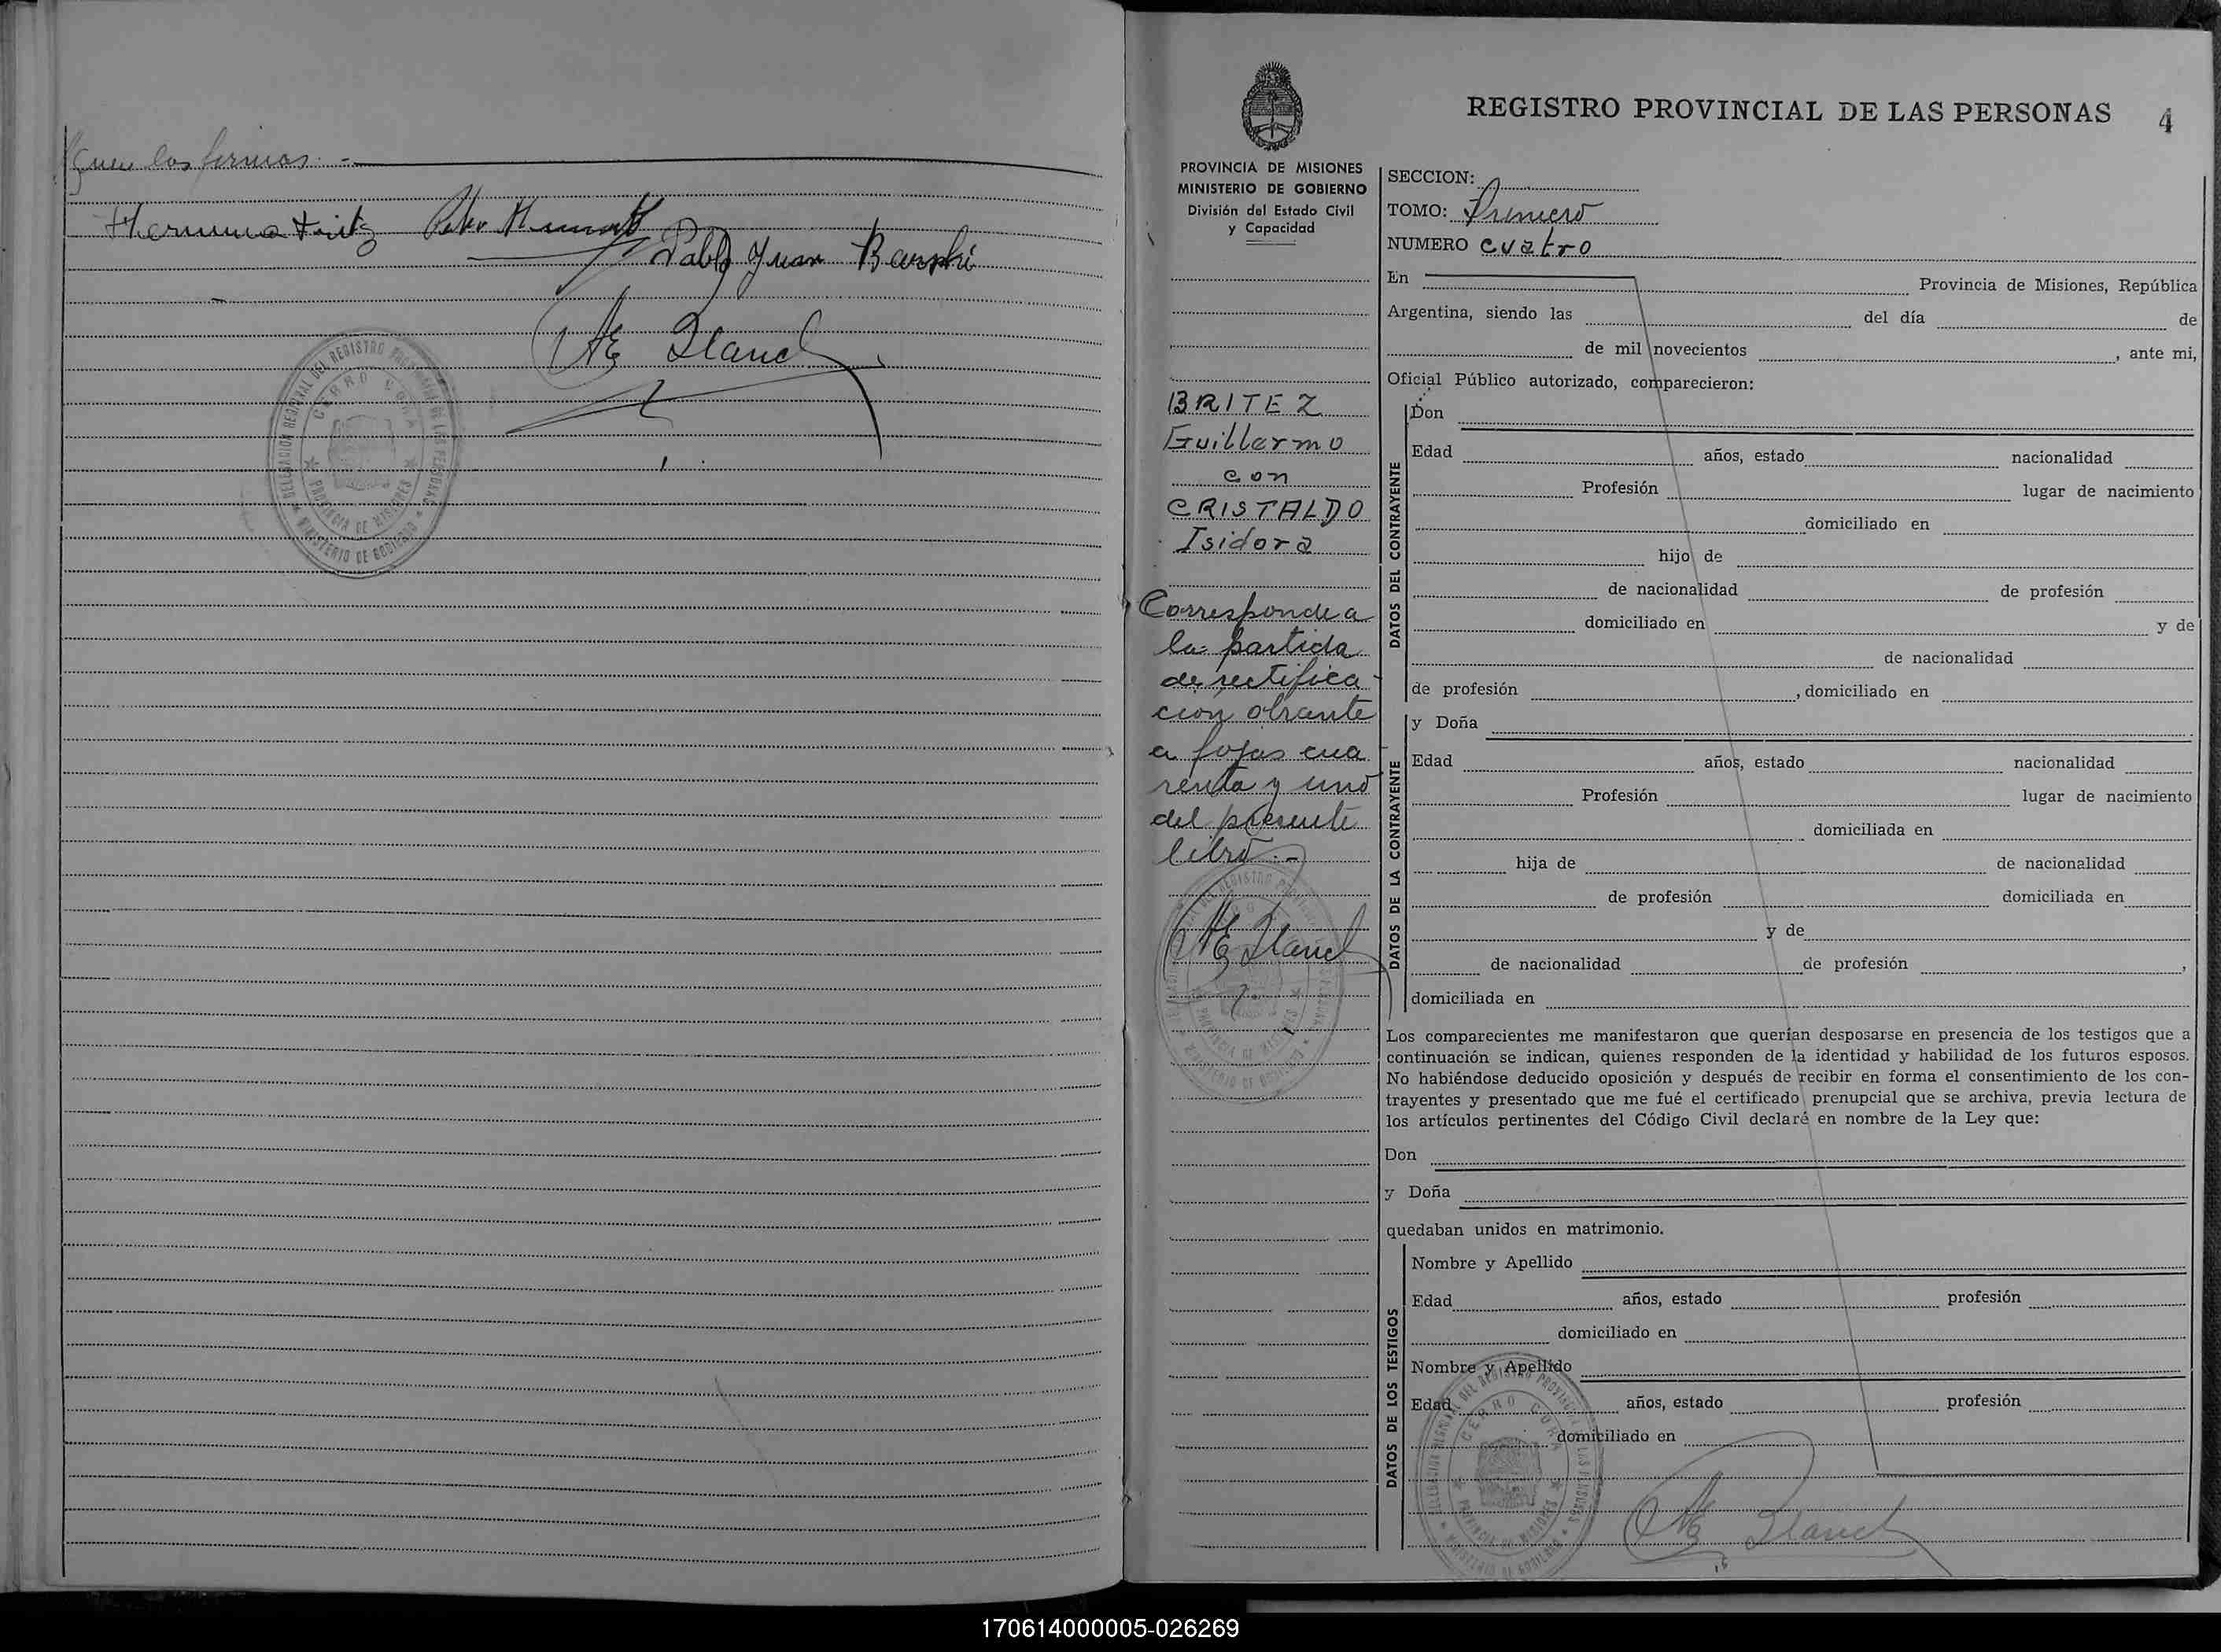 Siguen las firmas:-
Herminia Fritz
Pablo Juan
DELEGACION REGIONAL DEL REGISTRO PROVINCIAL DE LAS PERSONAS
CERRO CORA
PROVINCIA DE MISIONES
MINISTERIO DE GOBIERNO
REGISTRO PROVINCIAL DE LAS PERSONAS 4
PROVINCIA DE MISIONES
MINISTERIO DE GOBIERNO
División del Estado Civil
y Capacidad
BRITEZ
Guillermo
con
CRISTALDO
Isidora
Corresponde a
la partida
de rectifica-
ción obrante
a fojas cua-
renta y uno
del presente
libro.-
SECCION:
TOMO: Primero
NUMERO cuatro
En Provincia de Misiones, República
Argentina, siendo las del día de
de mil novecientos , ante mi,
Oficial Público autorizado, comparecieron:
DATOS DEL CONTRAYENTE
Don
Edad años, estado nacionalidad
Profesión lugar de nacimiento
domiciliado en
hijo de
de nacionalidad de profesión
domiciliado en y de
de nacionalidad
de profesión , domiciliado en
DATOS DE LA CONTRAYENTE
y Doña
Edad años, estado nacionalidad
Profesión lugar de nacimiento
domiciliada en
hija de de nacionalidad
de profesión domiciliada en
y de
de nacionalidad de profesión ,
domiciliada en
Los comparecientes me manifestaron que querían desposarse en presencia de los testigos que a
continuación se indican, quienes responden de la identidad y habilidad de los futuros esposos.
No habiéndose deducido oposición y después de recibir en forma el consentimiento de los con-
trayentes y presentado que me fué el certificado prenupcial que se archiva, previa lectura de
los artículos pertinentes del Código Civil declaré en nombre de la Ley que:
Don
y Doña
quedaban unidos en matrimonio.
DATOS DE LOS TESTIGOS
Nombre y Apellido
Edad años, estado profesión
domiciliado en
Nombre y Apellido
Edad años, estado profesión
domiciliado en
DELEGACION REGIONAL DEL REGISTRO PROVINCIAL DE LAS PERSONAS
CERRO CORA
PROVINCIA DE MISIONES
MINISTERIO DE GOBIERNO
170614000005-026269